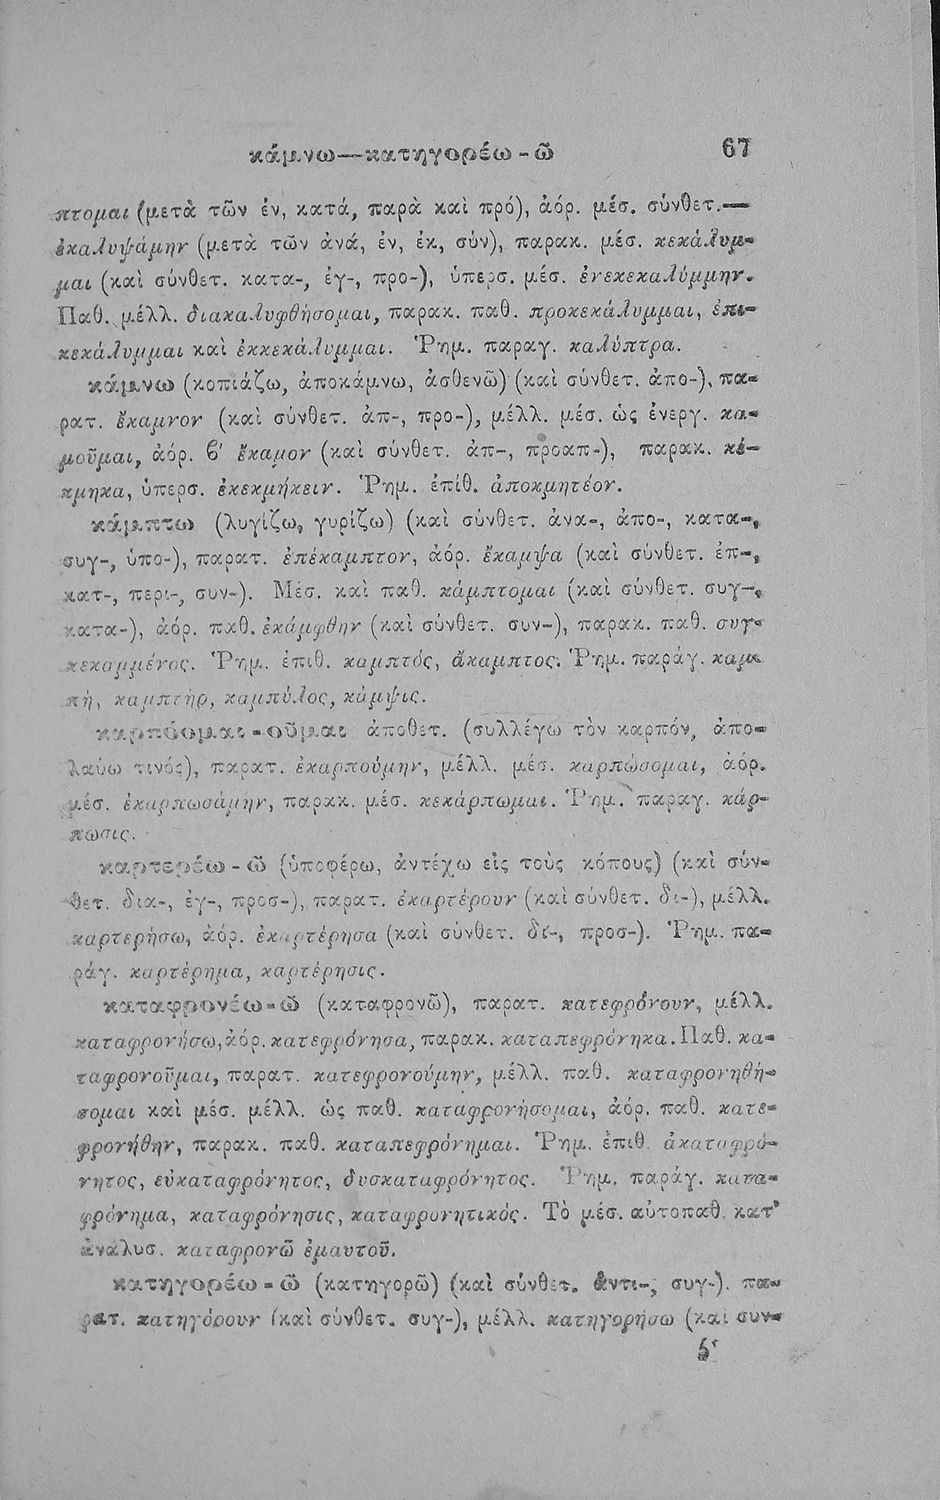 κάμνω—κατηγορέω-ῶ 67
πτομαι (μετὰ τῶν ἐν, κατά, παρὰ καὶ πρό), ἀόρ. μέσ. σύνθετ.—
ἐκαλυψάμην (μετὰ τῶν ἀνά, ἐν, ἐκ, σύν), παρακ. μέσ. κεκάλυμ-
μαι (καὶ σύνθετ. κατα-, ἐγ-, προ-), ὑπερσ. μέσ. ἐνεκεκαλύμμην.
Παθ. μέλλ. διακαλυφθήσομαι, παρακ. παθ. προκεκάλυμμαι, ἐπι-
κεκάλυμμαι καὶ ἐκκεκάλυμμαι. Ῥημ. παραγ. καλύπτρα.
κάμνω (κοπιάζω, ἀποκάμνω, ἀσθενῶ) (καὶ σύνθετ. ἀπο-), πα-
ρατ. ἔκαμνον (καὶ σύνθετ. ἀπ-, προ-), μέλλ. μέσ. ὡς ἐνεργ. κα-
μοῦμαι, ἀόρ. β' ἔκαμον (καὶ σύνθετ. ἀπ-, προαπ-), παρακ. κέ-
κμηκα, ὑπερσ. ἐκεκμήκειν. Ῥημ. ἐπίθ. ἀποκμητέον.
κάμπτω (λυγίζω, γυρίζω) (καὶ σύνθετ. ἀνα-, ἀπο-, κατα-,
συγ-, ὑπο-), παρατ. ἐπέκαμπτον, ἀόρ. ἔκαμψα (καὶ σύνθετ. ἐπ-,
κατ-, περι-, συν-). Μέσ. καὶ παθ. κάμπτομαι (καὶ σύνθετ. συγ-,
κατα-), ἀόρ. παθ. ἐκάμφθην (καὶ σύνθετ. συν-), παρακ. παθ. συγ-
κεκαμμένος. Ῥημ. ἐπιθ. καμπτός, ἄκαμπτος. Ῥημ. παράγ. καμ-
πή, καμπτήρ, καμπύλος, κάμψις.
καρπόομαι-οῦμαι ἀποθετ. (συλλέγω τὸν καρπόν, ἀπο-
λαύω τινός), παρατ. ἐκαρπούμην, μέλλ. μέσ. καρπώσομαι, ἀόρ.
μέσ. ἐκαρπωσάμην, παρακ. μέσ. κεκάρπωμαι. Ῥημ. παραγ. κάρ-
πωσις.
καρτερέω-ῶ (ὑποφέρω, ἀντέχω εἰς τοὺς κόπους) (καὶ σύν-
θετ. δια-, ἐγ-, προσ-), παρατ. ἐκαρτέρουν (καὶ σύνθετ. δι-), μέλλ.
καρτερήσω, ἀόρ. ἐκαρτέρησα (καὶ σύνθετ. δι-, προσ-). Ῥημ. πα-
ράγ. καρτέρημα, καρτέρησις.
καταφρονέω-ῶ (καταφρονῶ), παρατ. κατεφρόνουν, μέλλ.
καταφρονήσω, ἀόρ. κατεφρόνησα, παρακ. καταπεφρόνηκα. Παθ. κα-
ταφρονοῦμαι, παρατ. κατεφρονούμην, μέλλ. παθ. καταφρονηθή-
σομαι καὶ μέσ. μέλλ. ὡς παθ. καταφρονήσομαι, ἀόρ. παθ. κατε-
φρονήθην, παρακ. παθ. καταπεφρόνημαι. Ῥημ. ἐπιθ. ἀκαταφρό-
νητος, εὐκαταφρόνητος, δυσκαταφρόνητος. Ῥημ. παράγ. κατα-
φρόνημα, καταφρόνησις, καταφρονητικός. Τὸ μέσ. αὐτοπαθ. κατ'
ἀνάλυσ. καταφρονῶ ἐμαυτοῦ.
κατηγορέω-ῶ (κατηγορῶ) (καὶ σύνθετ. ἀντι-, συγ-). πα-
ρατ. κατηγόρουν (καὶ σύνθετ. συγ-), μέλλ. κατηγορήσω (καὶ συν-
5*